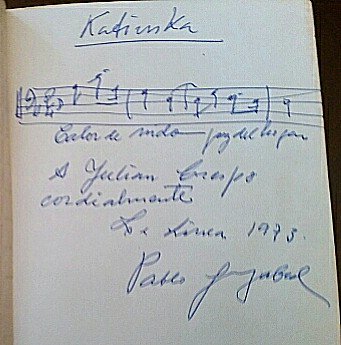 Katiuska
Calor de nido paz del hogar
A Julian Crespo
cordialmente
La Linea 1973.
Pablo Sorozabal